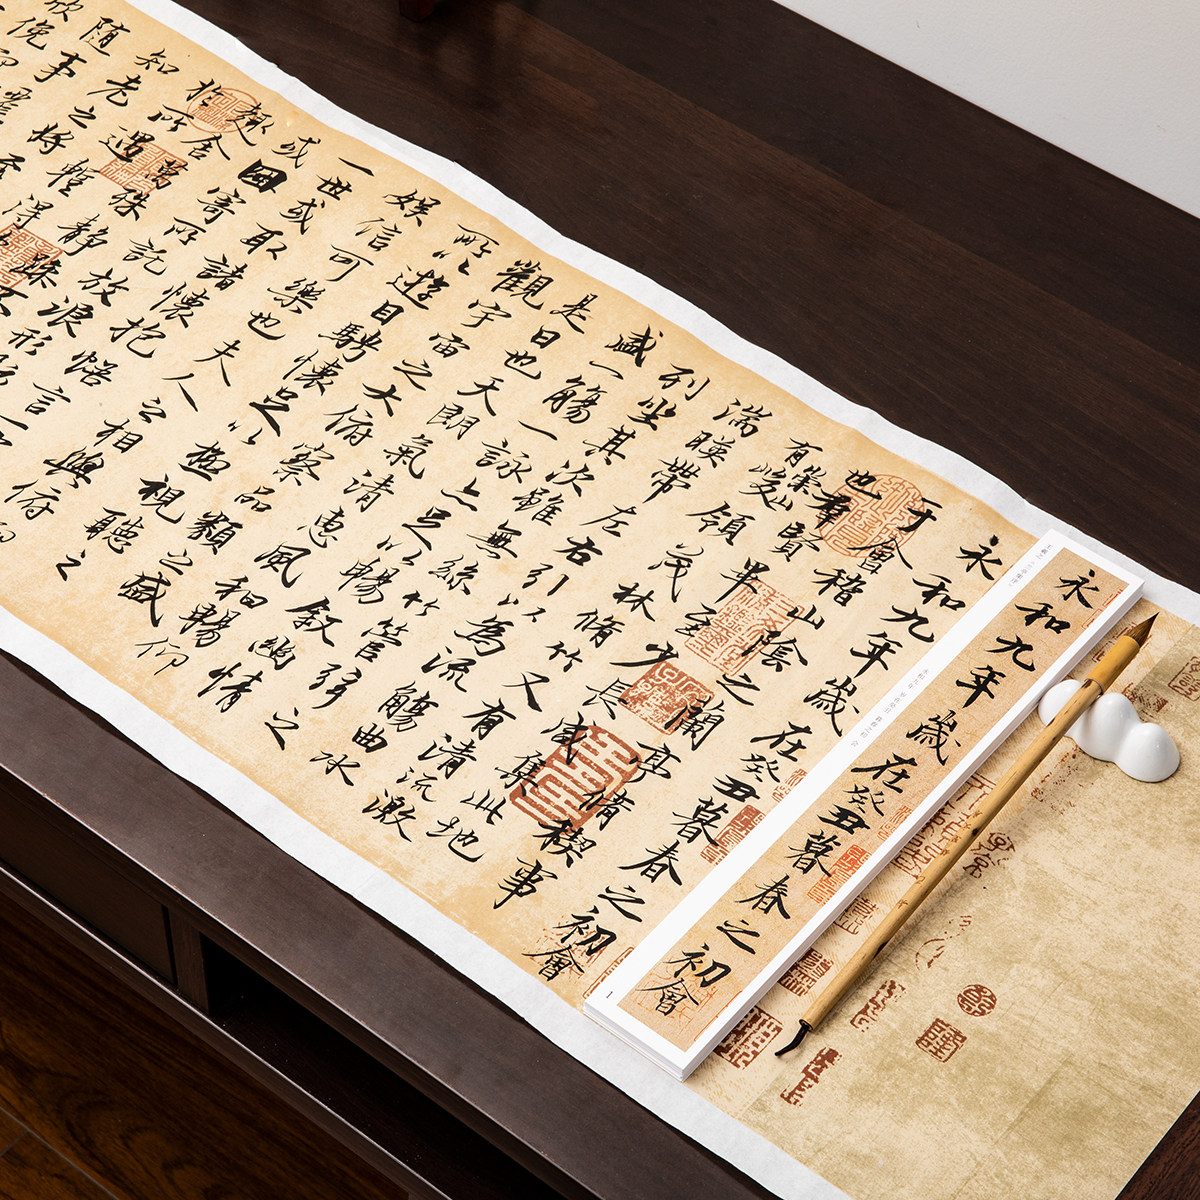 永和九年歲在癸丑暮春之初會
于會稽山陰之蘭亭脩稧事
也羣賢畢至少長咸集此地
有崇山峻領茂林脩竹又有清流激
湍暎帶左右引以為流觴曲水
列坐其次雖無絲竹管弦之
盛一觴一詠亦足以暢叙幽情
是日也天朗氣清惠風和暢仰
觀宇宙之大俯察品類之盛
所以遊目騁懷足以極視聽之
娛信可樂也夫人之相與俯仰
一世或取諸懷抱悟言一
或因寄所託放浪形
趣舍萬殊靜躁不
於所遇蹔得
知老之將至
隨事遷
欣俛仰
永和九年歲在癸丑暮春之初會
1